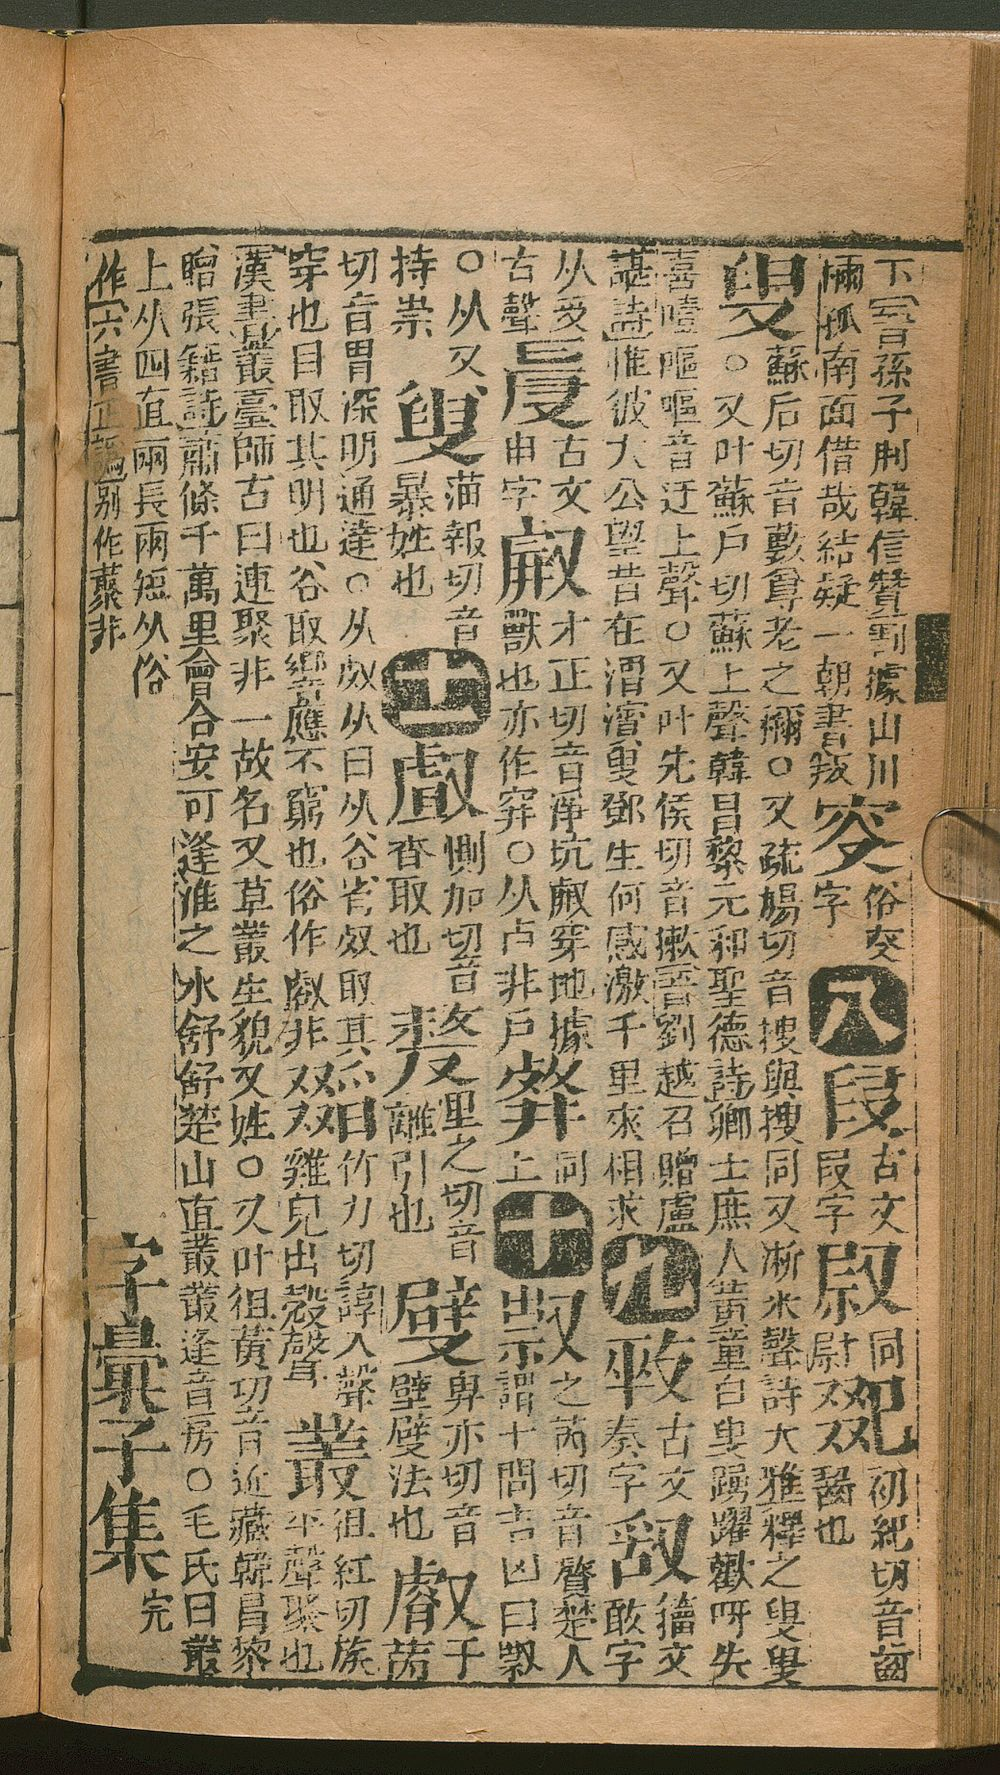 下晉孫子荆韓信贊割據山川
南面借哉結疑一朝書叛
㝊俗叜字
八
叚古文段字
㕂同尉
㕚初紀切音齒齧也
叟蘇后切音數尊老之稱○又疏鳩切音搜與搜同又淅米聲詩大雅釋之叟叟
○又叶蘇戶切蘇上聲韓昌黎元和聖德詩卿士庶人黃童白叟踴躍歡呀失
喜噎嘔嘔音迂上聲○又叶先侯切音漱晉劉越召贈盧
諶詩惟彼大公望昔在渭濵叟鄧生何感激千里來相求
九
古文奏字
敢籀文敢字
从𠬪古文
古聲
申字
叡才正切音淨坑叡穿地據
獸也亦作穽○从占非戶
同上
十
㕢之芮切音贅楚人謂卜問吉凶曰㕢
○从又持祟
㕦蒲報切音暴姓也
十一
㪥側加切音
沓取也
㹈里之切音離引也
㡀𤰞亦切音壁㡀法也
叡于芮
切音胃深明通達○从㕡从曰从谷省㕡取其
穿也目取其明也谷取響應不窮也俗作㕡非
竹力切諄入聲
雞兒出殼聲
叢徂紅切族平聲聚也
漢書叢臺師古曰連聚非一故名又草叢生貌又姓○又叶徂黃切音近藏韓昌黎
贈張籍詩蕭條千萬里會合安可逢淮之水舒舒楚山直叢叢逢音房○毛氏曰叢
上从四直兩長兩短从俗
作六書正譌別作藂非
字彙子集
完